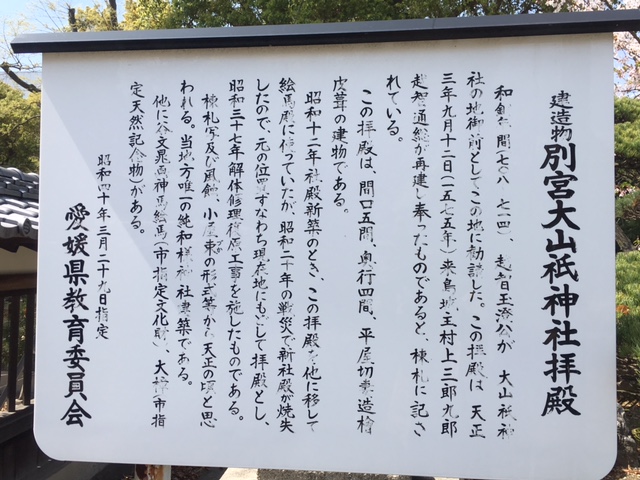 建造物 別宮大山祇神社拝殿
和銅年間(七〇八〜七一四)、越智玉澄公が 大山祇神
社の地御前としてこの地に勧請した。この拝殿は 天正
三年九月十二日(一五七五年)来島城主村上三郎九郎
越智通総が再建し奉ったものであると、棟札に記さ
れている。
この拝殿は、間口五間、奥行四間、平屋切妻造檜
皮葺の建物である。
昭和十二年社殿新築のとき、この拝殿を他に移して
絵馬殿に使っていたが、昭和二十年の戦災で新社殿が焼失
したので、元の位置すなわち現在地にもどして拝殿とし、
昭和三十七年解体修理復原工事を施したものである。
棟札写及び風蝕、小屋束の形式等から天正の頃と思
われる。当地方唯一の純和様神社建築である。
他に谷文晁画神馬絵馬(市指定文化財)、大樟(市指
定天然記念物)がある。
昭和四十年三月二十九日指定
愛媛県教育委員会